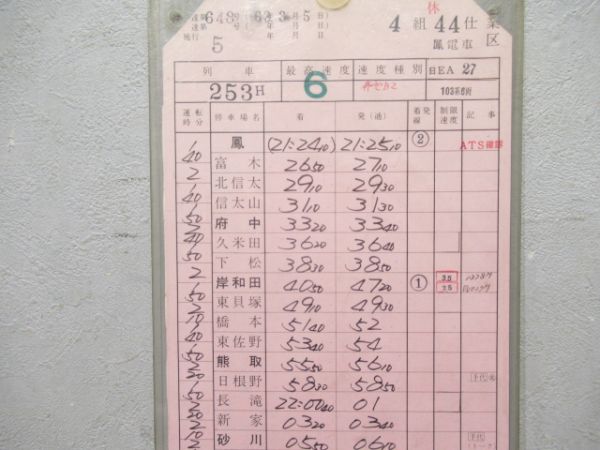 休
4 組 44 仕業
鳳電車区
5
列車 最高速度 速度種別 日EA 27
253H 6 103系6両
運転時分 停車場名 着 発(通) 着発線 制限速度 記事
鳳 (21:24 10) 21:25 10 ② ATS確認
1 40 富木 26 50 27 10
2 北信太 29 10 29 30
1 40 信太山 31 10 31 30
1 50 府中 33 20 33 40
2 40 久米田 36 20 36 40
1 50 下松 38 30 38 50
2 岸和田 40 50 47 20 ① 35 25
1 50 東貝塚 49 10 49 30
2 10 橋本 51 40 52
1 40 東佐野 53 40 54
1 50 熊取 55 50 56 10
2 20 日根野 58 30 58 50
1 50 長滝 22:00 40 01
2 20 新家 03 20 03 40
2 10 砂川 05 50 06 10